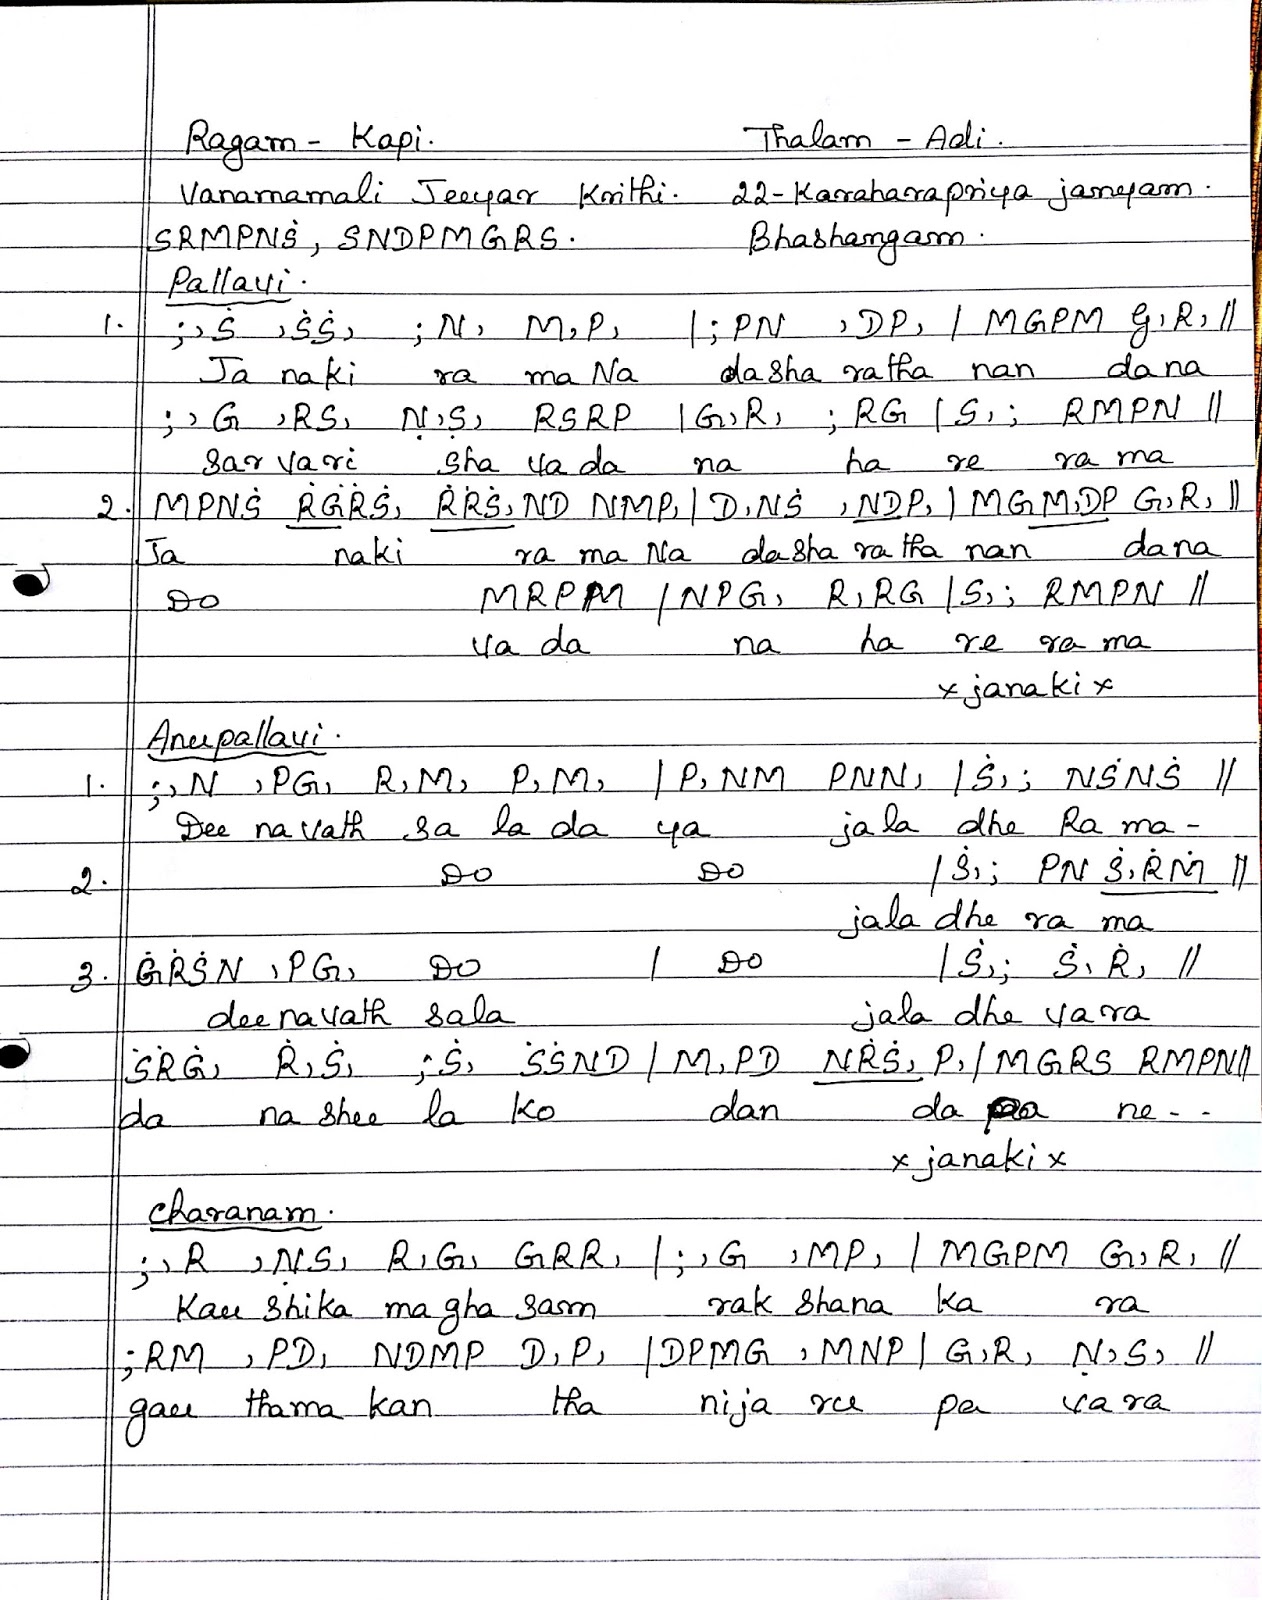 Ragam - Kapi. Thalam - Adi.
Vanamamali Jeeyar Krithi. 22-Karaharapriya janyam.
SRMPNṠ, SNDPMGRS. Bhashangam.
Pallavi.
1. ;, Ṡ , ṠṠ, ; N, M, P, | ; PN , DP, | MGPM G, R, ||
Ja naki ra ma Na dasha ratha nan dana
;, G , RS, Ṇ, Ṣ, RSRP | G, R, ; RG | S, ; RMPN ||
sar vari sha va da na ha re ra ma
2. MPNṠ ṘĠṘṠ, ṘṘṠ, ND NMP, | D, NṠ , NDP, | MGM, DP G, R, ||
Ja naki ra ma Na dasha ra tha nan dana
Do MRPM | NPG, R, RG | S, ; RMPN ||
va da na ha re ra ma
x janaki x
Anupallavi.
1. ;, N , PG, R, M, P, M, | P, NM PNN, | Ṡ, ; NṠNṠ ||
Dee na vath sa la da ya jala dhe Ra ma -
2. Do Do | Ṡ, ; PN Ṡ, ṘṀ ||
jala dhe ra ma
3. ĠṘṠN , PG, Do | Do | Ṡ, ; Ṡ, Ṙ, ||
dee navath sala jala dhe vara
ṠṘĠ, Ṙ, Ṡ, ; Ṡ, ṠṠND | M, PD NṘṠ, P, | MGRS RMPN ||
da na shee la ko dan da ne - -
x janaki x
Charanam.
;, R , ṆS, R, G, GRR, | ;, G , MP, | MGPM G, R, ||
Kau shika ma gha sam rak shana ka ra
; RM , PD, NDMP D, P, | DPMG , MNP | G, R, Ṇ, S, ||
gau thama kan tha nija ru pa va ra